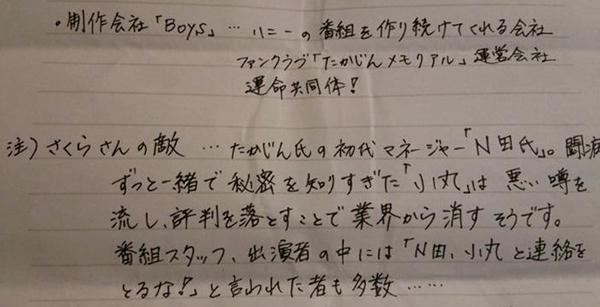 ・制作会社「Boys」… ハニーの番組を作り続けてくれる会社
ファンクラブ「たかじんメモリアル」運営会社
運命共同体!
注) さくらさんの敵 … たかじん氏の初代マネージャー「N田氏」。闘病
ずっと一緒で秘密を知りすぎた「小丸」は悪い噂を
流し、評判を落とすことで業界から消すそうです。
番組スタッフ、出演者の中には「N田、小丸と連絡を
とるな!」と言われた者も多数……